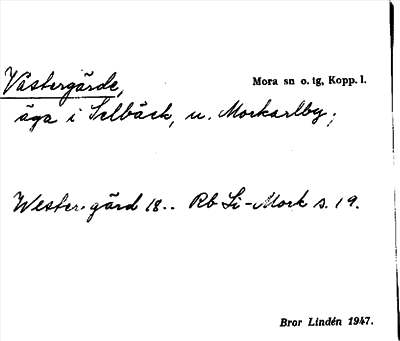 Västergärde,
Mora sn o. tg, Kopp. l.
äga i Selbäck, u. Morkarlby;
Wester gärd 18.. Rb Li-Mork s. 19.
Bror Lindén 1947.